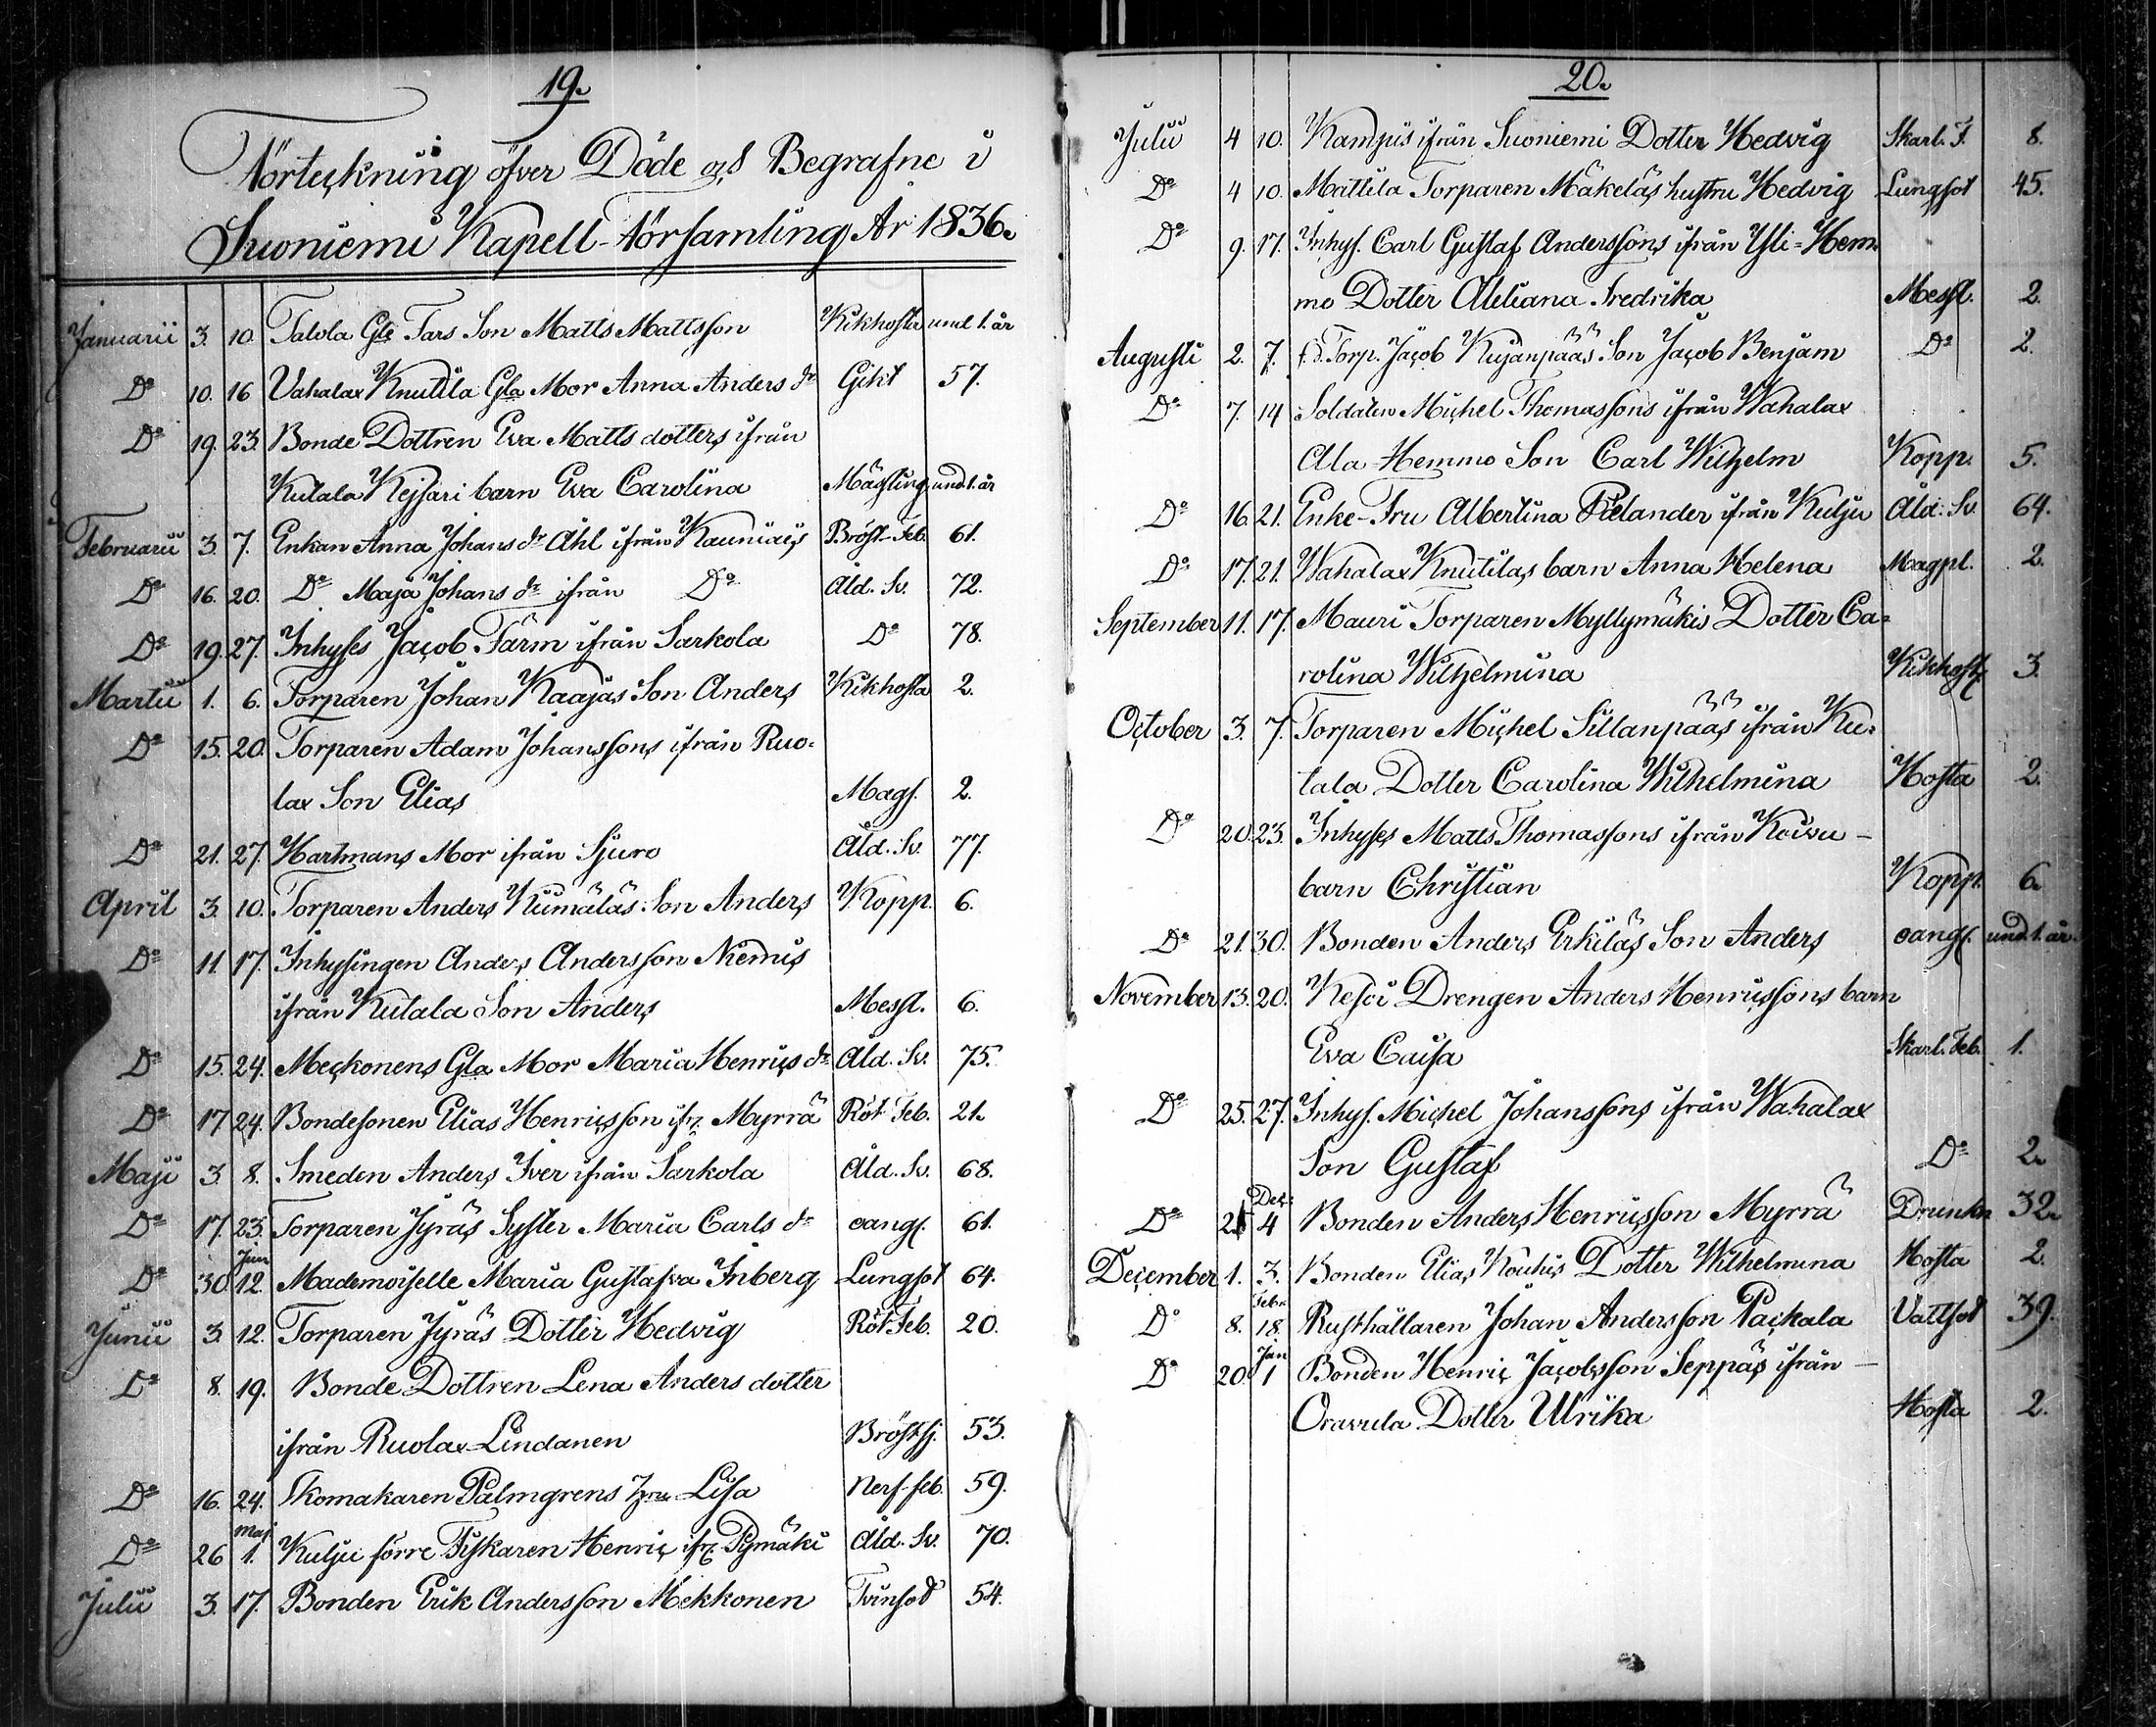 19.
Förteckning öfver Döde och Begrafne i
Suoniemi Kapell-Församling År 1836.
Januarii 3. 10. Talola Gle Fars Son Matts Mattsson Kikhosta und 1. år
Do 10. 16 Vahalax Knutila Gla Mor Anna Anders dr Gikt 57.
Do 19. 23. Bonde Dottren Eva Matts dotters ifrån
Kulala Kejsari barn Eva Carolina Mäßling und 1. år
Februarii 3. 7. Enkan Anna Johans dr Ahl ifrån Kauniais Bröst-Feb. 61.
Do 16. 20. Do Maja Johans dr ifrån Do Åld. Sv. 72.
Do 19. 27. Inhyses Jacob Färm ifrån Sarkola Do 78.
Martii 1. 6. Torparen Johan Kaajas Son Anders Kikhosta 2.
Do 15. 20. Torparen Adam Johanssons ifrån Ruo-
lax Son Elias Mags. 2.
Do 21. 27. Hartmans Mor ifrån Sjuro Åld. Sv. 77.
April 3. 10. Torparen Anders Kumäläs Son Anders Kopp. 6.
Do 11. 17. Inhysingen Anders Andersson Niemis
ifrån Kulala Son Anders Messl. 6.
Do 15. 24. Meckonens Gla Mor Maria Henrics dr Åld. Sv. 75.
Do 17 24. Bondesonen Elias Henricsson ifr. Myrrä Röt Feb. 21.
Maji 3. 8. Smeden Anders Iver ifrån Sarkola Åld. Sv. 68.
Do 17. 23. Torparen Jyräs Syster Maria Carls dr oangf. 61.
Juni
Do 30. 12. Mademoiselle Maria Gustafva Inberg Lungsot 64.
Junii 3. 12. Torparen Jyräs Dotter Hedvig Röt Feb. 20.
Do 8. 19. Bonde Dottren Lena Anders dotter
ifrån Ruolax Lindanen Bröstsj. 53.
Do 16. 24. Skomakaren Palmgrens Lisa Nerf-feb. 59.
Maj
Do 26 1. Kulju förre Fiskaren Henric ifr. Pymäki Åld. Sv. 70.
Julii 3. 17. Bonden Erik Andersson Mekkonen Tvinsot 54.
20.
Julii 4 10. Kampis ifrån Suoniemi Dotter Hedvig Skarl. F. 8.
Do 4 10. Mattila Torparen Mäkeläs hustru Hedvig Lungsot 45.
Do 9. 17. Inhys. Carl Gustaf Anderssons ifrån Yli-Hem-
mo Dotter Aleliana Fredrika Messl. 2.
Augusti 2. 7. Torp. Jacob Kujanpääs Son Jacob Benjam Do 2.
Do 7. 14 Soldaten Michel Thomassons ifrån Wahalax
Ala-Hemmo Son Carl Wilhelm Kopp. 5.
Do 16. 21. Enke-Fru Albertina Pelander ifrån Kulju Åld. Sv. 64.
Do 17. 21. Wahalax Knutilas barn Anna Helena Magpl. 2.
September 11. 17. Mauri Torparen Myllymäkis Dotter Ca-
rolina Wilhelmina Kikhost. 3.
October 3. 7. Torparen Michel Sillanpääs ifrån Ku-
lala Dotter Carolina Wilhelmina Hosta 2.
Do 20. 23. Inhyses Matts Thomassons ifrån Koivu-
barn Christian Kopp. 6.
Do 21. 30. Bonden Anders Erkiläs Son Anders oangf. und 1. år.
November 13. 20. Kesoi Drengen Anders Henricssons barn
Eva Caisa Skarl. Feb. 1.
Do 25. 27. Inhys. Michel Johanssons ifrån Wahalax
Son Gustaf Do 2.
Dec:
Do 4 Bonden Anders Henricsson Myrrä Drunkn 32.
December 1. 3. Bonden Elias Koukis Dotter Wilhelmina Hosta 2.
Febr.
Do 8. 18. Rusthållaren Johan Andersson Packala Vattsot 39.
Jan
Do 20. 1 Bonden Henric Jacobsson Seppäs ifrån
Oravula Dotter Ulrika Hosta 2.